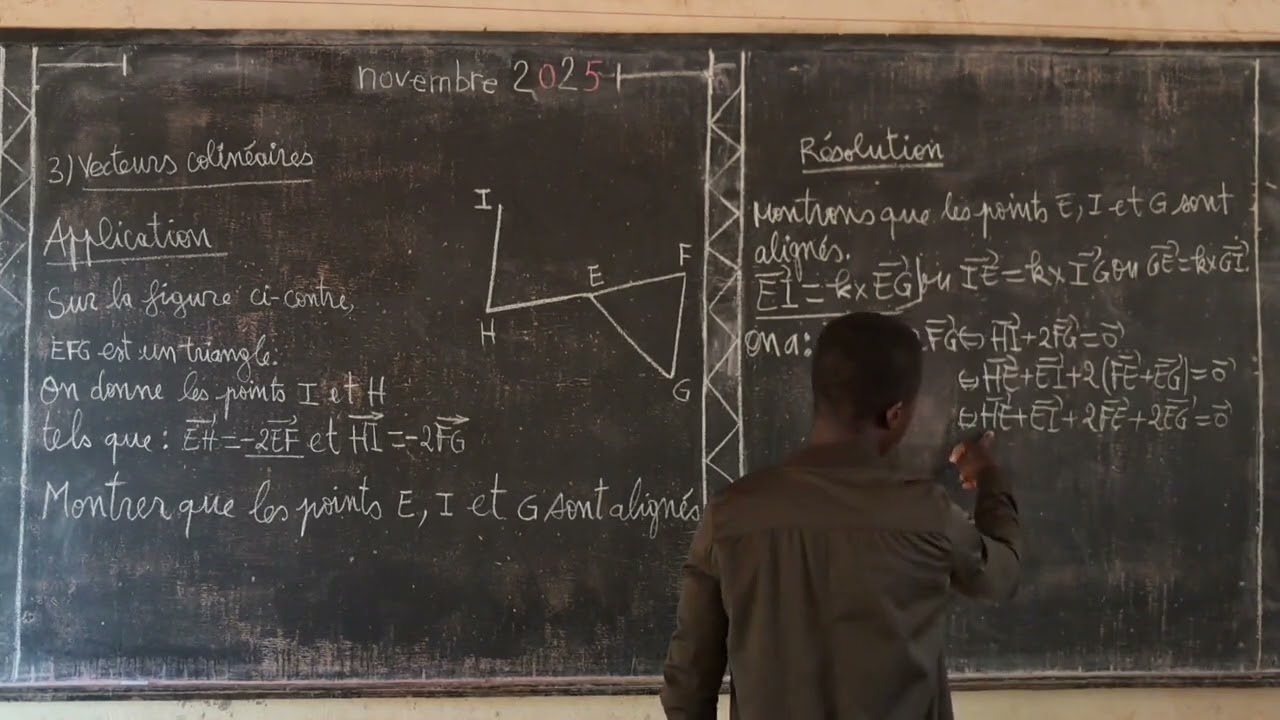 novembre 2025
3) Vecteurs colinéaires
Application
Sur la figure ci-contre,
EFG est un triangle.
On donne les points I et H
tels que : EH⃗ = -2EF⃗ et HI⃗ = -2FG⃗
Montrer que les points E, I et G sont alignés
I
H
E
F
G
Résolution
Montrons que les points E, I et G sont
alignés.
EI⃗ = k × EG⃗ ou IE⃗ = k × IG⃗ ou GE⃗ = k × GI⃗.
on a : 2FG⃗ ⇔ HI⃗ + 2FG⃗ = 0⃗
⇔ HE⃗ + EI⃗ + 2(FE⃗ + EG⃗) = 0⃗
⇔ HE⃗ + EI⃗ + 2FE⃗ + 2EG⃗ = 0⃗